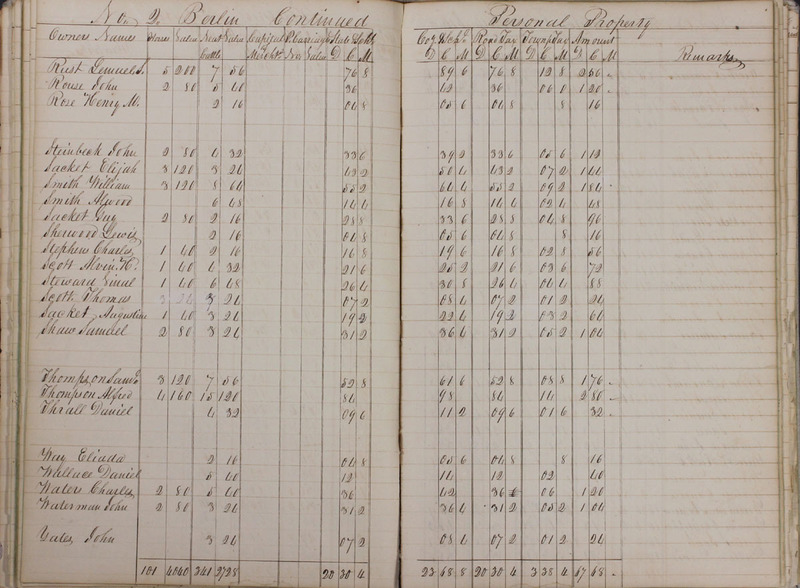 No. 2, Berlin Continued Personal Property
Owners Names Horses Value Neat Value Capital Carriages Value State Co. & School Road Tax Township Tax Amount
Cattle D C M D C M D C M D C M D C M Remarks
Rust Lemuel 5 200 7 56 76 8 89 6 76 8 12 8 2 56
Rouse John 2 80 5 40 36 42 36 06 0 1 20
Rose Henry M. 2 16 04 8 05 6 04 8 8 16
Steinbeck John 2 80 4 32 33 6 39 2 33 6 05 6 1 12
Sacket Elijah 3 120 3 24 43 2 50 4 43 2 07 2 1 44
Smith William 3 120 8 64 55 2 64 4 55 2 09 2 1 84
Smith Alwood 6 48 14 4 16 8 14 4 02 4 48
Sacket Guy 2 80 2 16 28 8 33 6 28 8 04 8 96
Sherwood Lewis 2 16 04 8 05 6 04 8 8 16
Stephens Charles 1 40 2 16 16 8 19 6 16 8 02 8 56
Scott Alvin H. 1 40 4 32 21 6 25 2 21 6 03 6 72
Steward 1 40 6 48 26 4 30 8 26 4 04 4 88
Scott Thomas 3 24 07 2 08 4 07 2 01 2 24
Sacket Augustine 1 40 3 24 19 2 22 4 19 2 03 2 64
Shaw Samuel 2 80 3 24 31 2 36 4 31 2 05 2 1 04
Thompson Saml. 3 120 7 56 52 8 61 6 52 8 08 8 1 76
Thompson Alfred 4 160 15 120 84 98 84 14 2 80
Thrall Daniel 4 32 09 6 11 2 09 6 01 6 32
Way Eliada 2 16 04 8 05 6 04 8 8 16
Wallace Daniel 5 40 12 14 12 02 40
Waters Charles 2 80 5 40 36 42 36 06 1 20
Waterman John 2 80 3 24 31 2 36 4 31 2 05 2 1 04
Yates, John 3 24 07 2 08 4 07 2 01 2 24
101 4040 341 2728 20 30 4 23 68 8 20 30 4 3 38 4 67 68